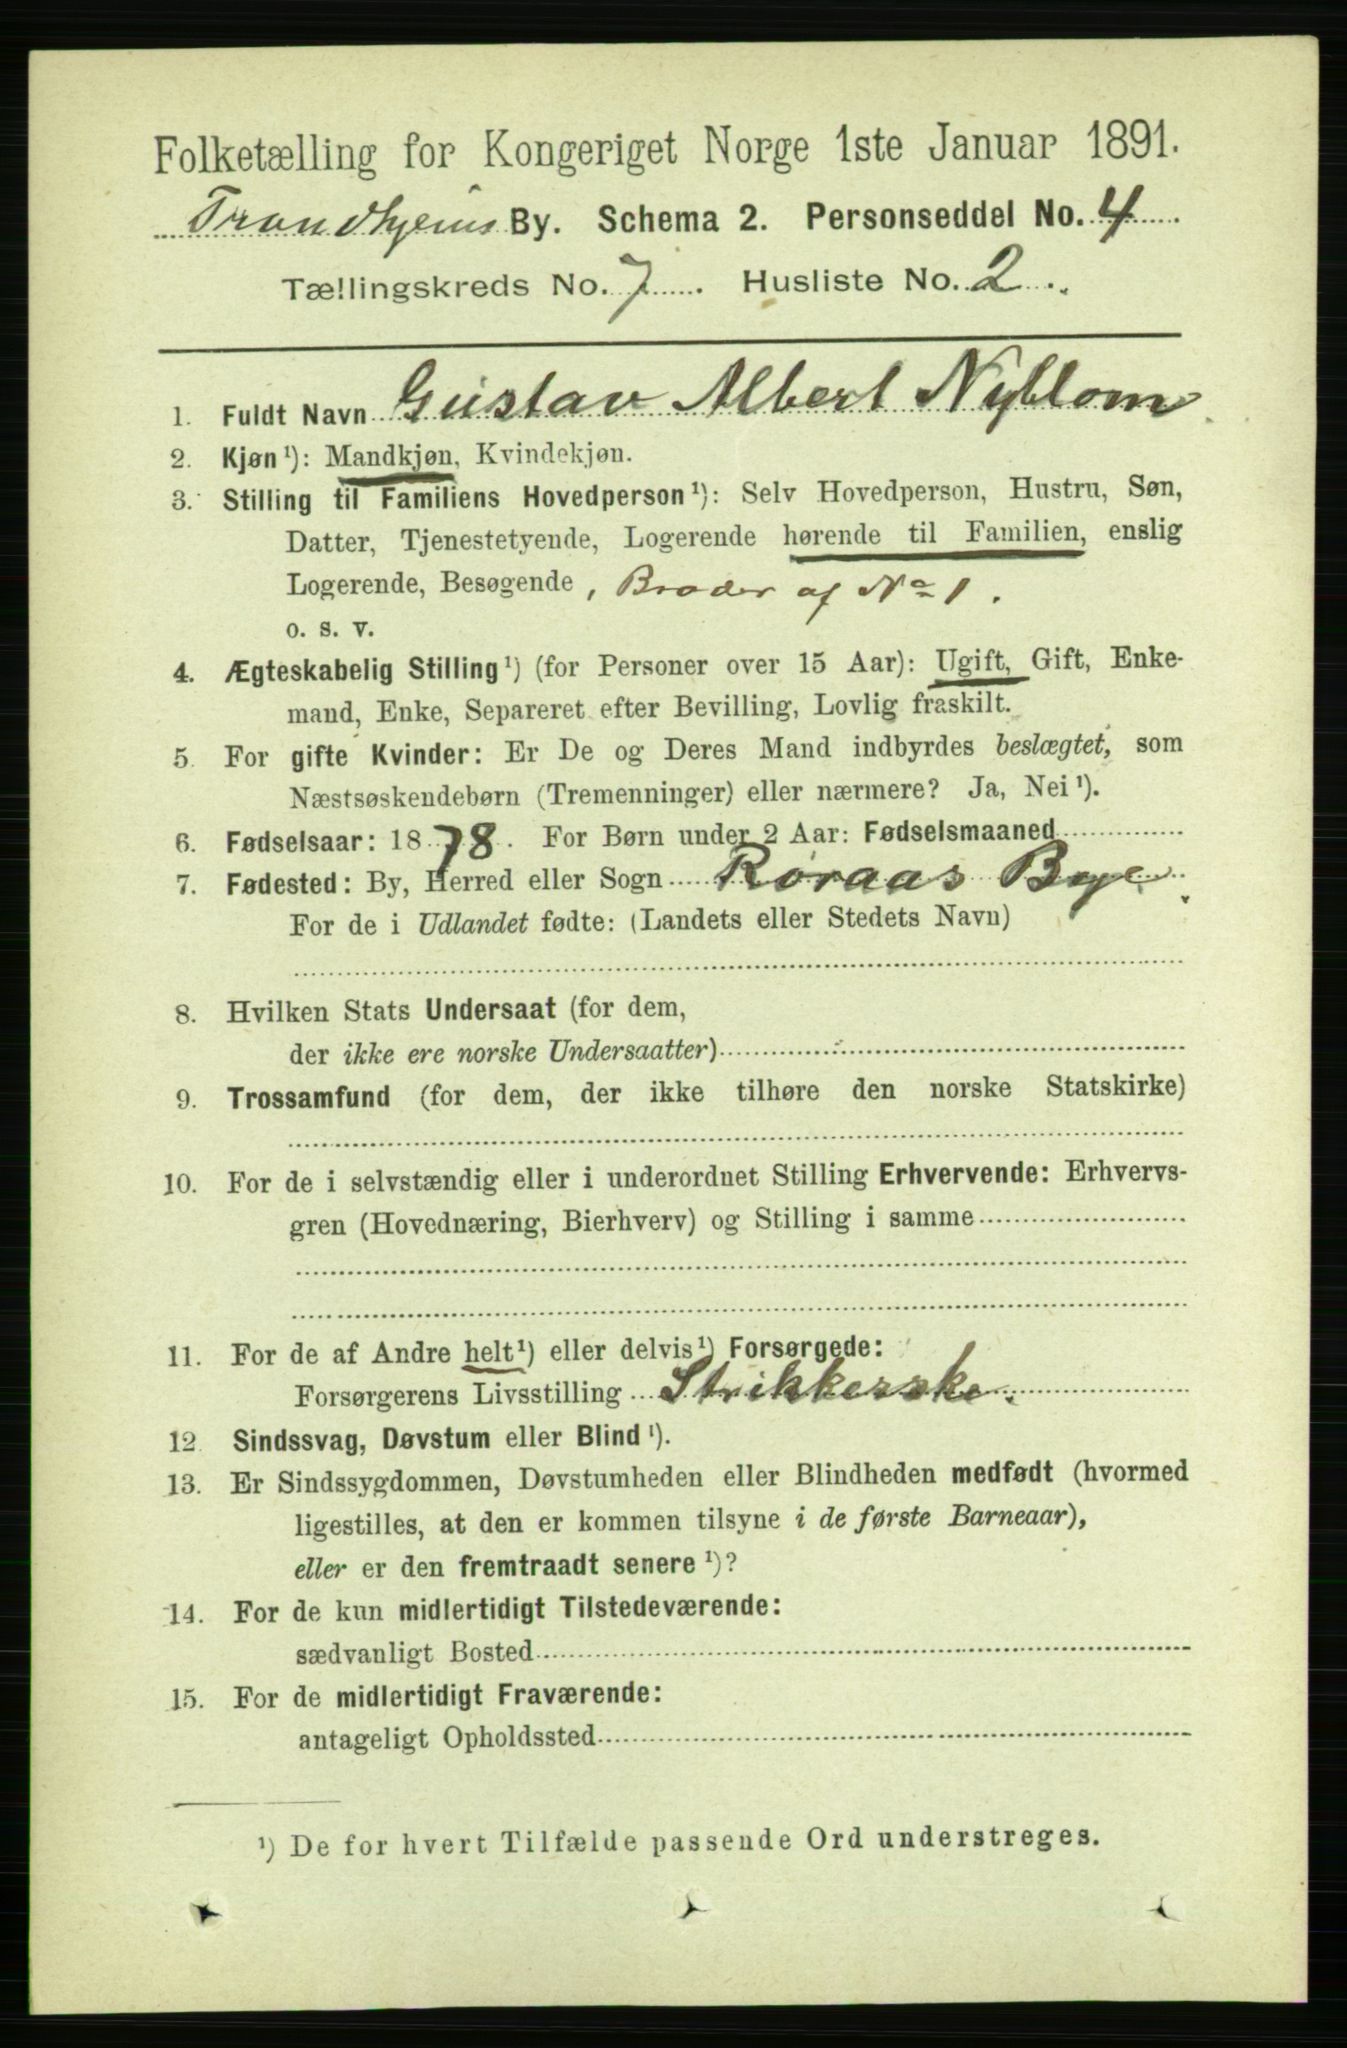 Folketælling for Kongeriget Norge 1ste Januar 1891.
Trondhjems By. Schema 2. Personseddel No. 4
Tællingskreds No. 7. Husliste No. 2
1. Fuldt Navn Gustav Albert Nyblom
2. Kjøn ¹): Mandkjøn, Kvindekjøn.
3. Stilling til Familiens Hovedperson ¹): Selv Hovedperson, Hustru, Søn,
Datter, Tjenestetyende, Logerende hørende til Familien, enslig
Logerende, Besøgende, Broder af No 1.
o. s. v.
4. Ægteskabelig Stilling ¹) (for Personer over 15 Aar): Ugift, Gift, Enke-
mand, Enke, Separeret efter Bevilling, Lovlig fraskilt.
5. For gifte Kvinder: Er De og Deres Mand indbyrdes beslægtet, som
Næstsøskendebørn (Tremenninger) eller nærmere? Ja, Nei ¹).
6. Fødselsaar: 1878. For Børn under 2 Aar: Fødselsmaaned
7. Fødested: By, Herred eller Sogn Røraas Bye.
For de i Udlandet fødte: (Landets eller Stedets Navn)
8. Hvilken Stats Undersaat (for dem,
der ikke ere norske Undersaatter)
9. Trossamfund (for dem, der ikke tilhøre den norske Statskirke)
10. For de i selvstændig eller i underordnet Stilling Erhvervende: Erhvervs-
gren (Hovednæring, Bierhverv) og Stilling i samme
11. For de af Andre helt ¹) eller delvis ¹) Forsørgede:
Forsørgerens Livsstilling Strikkerske.
12. Sindssvag, Døvstum eller Blind ¹).
13. Er Sindssygdommen, Døvstumheden eller Blindheden medfødt (hvormed
ligestilles, at den er kommen tilsyne i de første Barneaar),
eller er den fremtraadt senere ¹)?
14. For de kun midlertidigt Tilstedeværende:
sædvanligt Bosted
15. For de midlertidigt Fraværende:
antageligt Opholdssted
¹) De for hvert Tilfælde passende Ord understreges.